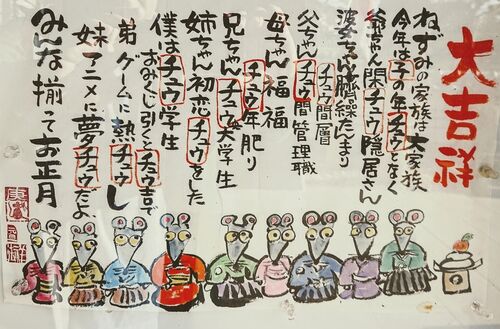 大吉祥
ねずみの家族は大家族
今年は子の年チュウとなく
爺ちゃん閑チュウ隠居さん
婆ちゃん臍繰たんまり
チュウ間層
父ちゃんチュウ間管理職
母ちゃん福福
チュウ年肥り
兄ちゃんチュウ大学生
姉ちゃん初恋チュウをした
僕はチュウ学生
おみくじ引くとチュウ吉で
弟ゲームに熱チュウし
妹アニメに夢チュウだよ
みんな揃ってお正月